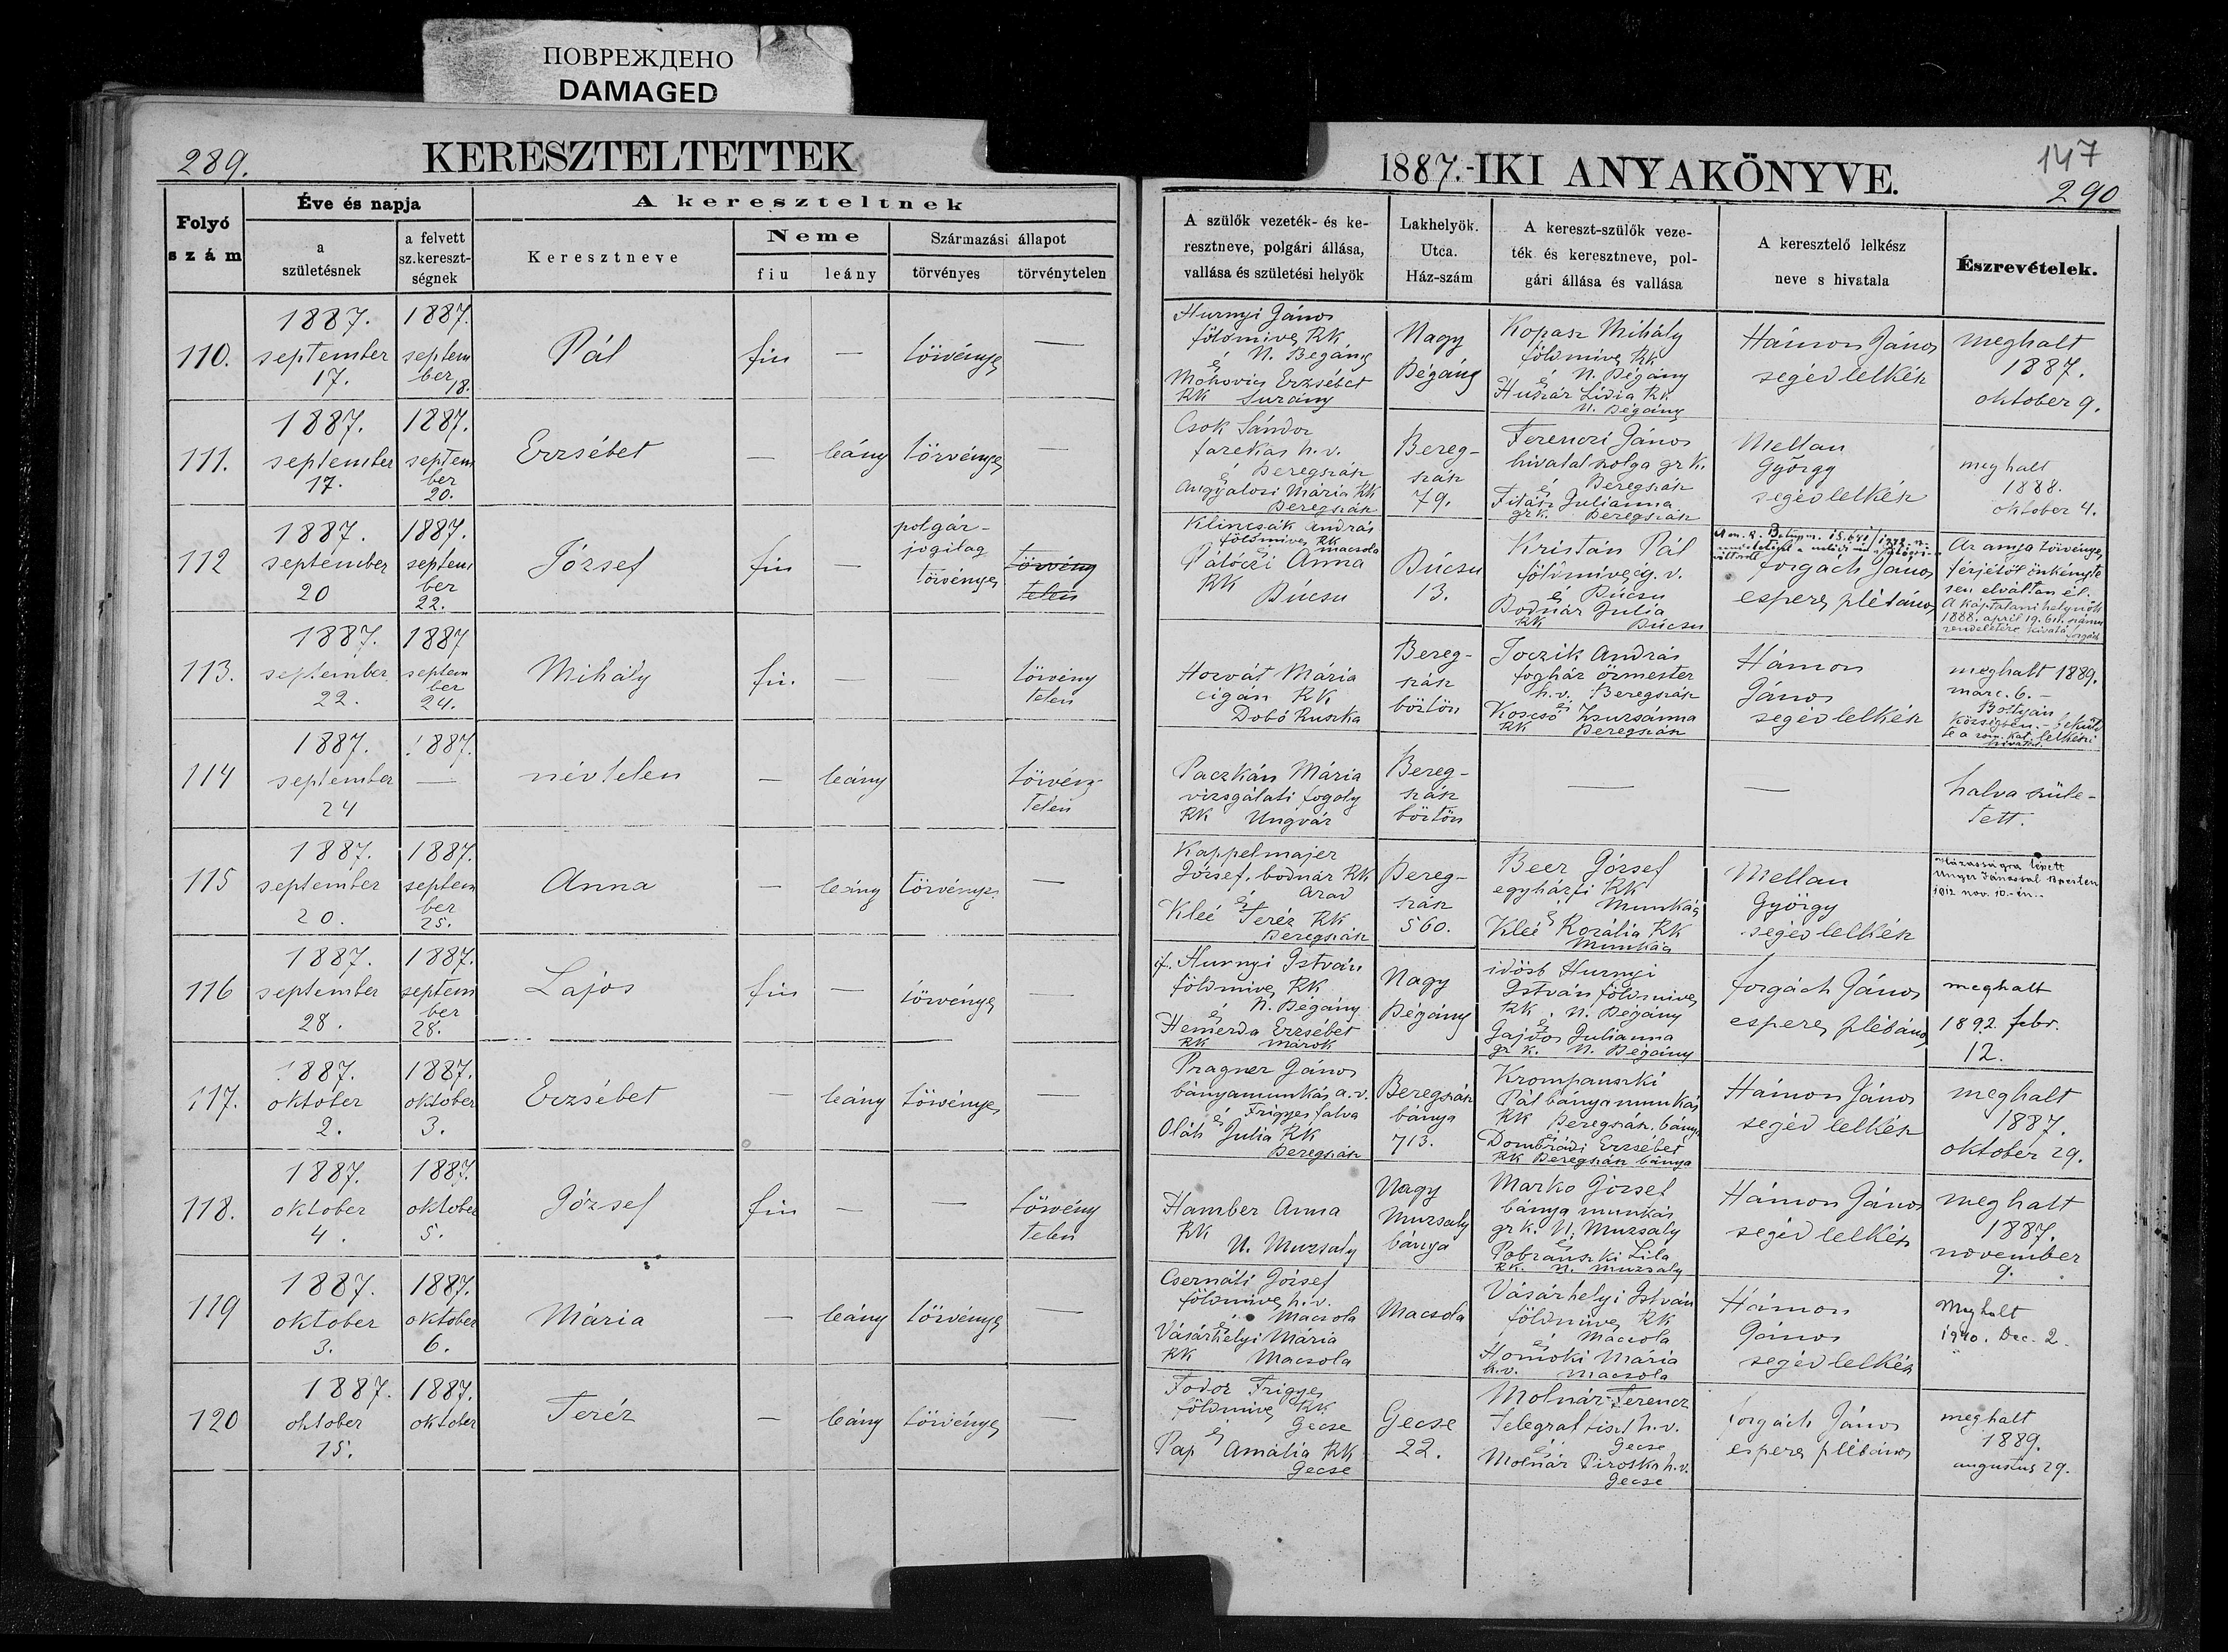 ПОВРЕЖДЕНО
DAMAGED
289.
KERESZTELTETTEK
1887.-IKI ANYAKÖNYVE.
147
290
Folyó
szám
Éve és napja
a
születésnek
a felvett
sz.kereszt-
ségnek
A kereszteltnek
Keresztneve
Neme
fiu
leány
Származási állapot
törvényes
törvénytelen
A szülők vezeték- és ke-
resztneve, polgári állása,
vallása és születési helyök
Lakhelyök.
Utca.
Ház-szám
A kereszt-szülők veze-
ték és keresztneve, pol-
gári állása és vallása
A keresztelő lelkész
neve s hivatala
Észrevételek.
110.
1887.
september
17.
1887.
septem
ber
18.
Pál
fiu
—
törvényes
—
Hurnyi János
földmives RK
és N. Bégány
Mohovics Erzsébet
RK Surány
Nagy
Bégány
Kopasz Mihály
földmives RK
és N. Bégány
Huszár Lidia RK
N. Bégány
Hámon János
segédlelkész
meghalt
1887.
oktober 9.
111.
1887.
september
17.
1887.
septem
ber
20.
Erzsébet
—
leány
törvényes
—
Csok Sándor
farekas h.v.
és Beregszász
Angyalosi Mária RK
Beregszász
Bereg-
szász
79.
Ferenczi János
hivatalszolga gr k.
és Beregszász
Julianna
gr k. Beregszász
Mellan
György
segédlelkész
meghalt
1888.
oktober 4.
112
1887.
september
20
1887.
septem
ber
22.
József
fiu
—
polgár-
jogilag
törvényes
törvény
telen
Klincsák András
földmives RK
és macsola
Pálóczi Anna
RK Búcsu
Búcsu
13.
Kristán Pál
földmives g. v.
és Búcsu
Bodnár Julia
RK Búcsu
forgách János
esperes plébános
Az anyja törvényes
férjétől önkényte
sen elváltan él.
A káptalani helynök
1888. april 19. 611. számu
rendeletére
113.
1887.
september
22.
1887
septem
ber
24.
Mihály
fiu.
—
—
törvény
telen
Horvát Mária
cigán RK
Dobó Ruszka
Bereg-
szász
börtön
Joczik András
fogház örmester
h.v. Beregszász
és
Koscsó Zsuzsánna
RK Beregszász
Hámon
János
segédlelkész
meghalt 1889.
márc. 6. –
Bottyán
községben. –
te a rom. kat. lelkészi
hivatal.
114
1887.
september
24
1887.
—
névtelen
—
leány
törvény
telen
Paczkán Mária
vizsgálati fogoly
RK Ungvár
Bereg-
szász
börtön
—
—
halva szüle-
tett.
115
1887.
september
20.
1887.
septem
ber
25.
Anna
—
leány
törvényes
—
Kappelmajer
József, bodnár RK
és Arad
Kleé Teréz RK
Beregszász
Bereg-
szász
560.
Beer József
egyházfi RK
és Munkács
Kleé Rozália RK
Munkács
Mellan
György
segédlelkész
Házasságra lépett
Unger Jánossal Bpesten
1912 nov. 10.-én.
116
1887.
september
28.
1887.
septem
ber
28.
Lajos
fiu
—
törvényes
—
if. Hurnyi István
földmives RK
és N. Bégány
Hemerda Erzsébet
RK Márok
Nagy
Bégány
idösb Hurnyi
István földmives
RK, N. Bégány
és
Gajdos Julianna
gr k. N. Bégány
forgách János
esperes plébános
meghalt
1892. febr.
12.
117.
1887.
oktober
2.
1887.
oktober
3.
Erzsébet
—
leány
törvényes
—
Pragner János
bányamunkás a. v.
és Frigyesfalva
Oláh Julia RK
Beregszász
Beregszász
bánya
713.
Krompauszki
Pál bányamunkás
RK Beregszász. bánya
és
Dombrádi Erzsébet
RK Beregszász bánya
Hámon János
segédlelkész
meghalt
1887.
oktober 29.
118.
1887.
oktober
4.
1887.
oktober
5.
József
fiu
—
—
törvény
telen
Hamber Anna
RK
N. Muzsaly
Nagy
Muzsaly
bánya
Marko József
bánya munkás
gr k. N. Muzsaly
és
Pobranszki Lila
RK. N. Muzsaly
Hámon János
segédlelkész
meghalt
1887.
november
9.
119
1887.
oktober
3.
1887.
oktober
6.
Mária
—
leány
törvényes
—
Csernáti József
földmives h.v.
és Macsola
Vásárhelyi Mária
RK Macsola
Macsola
Vásárhelyi István
földmives RK
és Macsola
Homoki Mária
h.v. Macsola
Hámon
János
segédlelkész
Meghalt
1940. Dec. 2.
120
1887.
oktober
15.
1887.
oktober
Teréz
—
leány
törvényes
—
Fodor Frigyes
földmives RK
és Gecse
Pap Amália RK
Gecse
Gecse
22.
Molnár Ferencz
Telegrattiszt h.v.
és Gecse
Molnár Piroska h.v.
Gecse
forgách János
esperes plébános
meghalt
1889.
augustus 29.